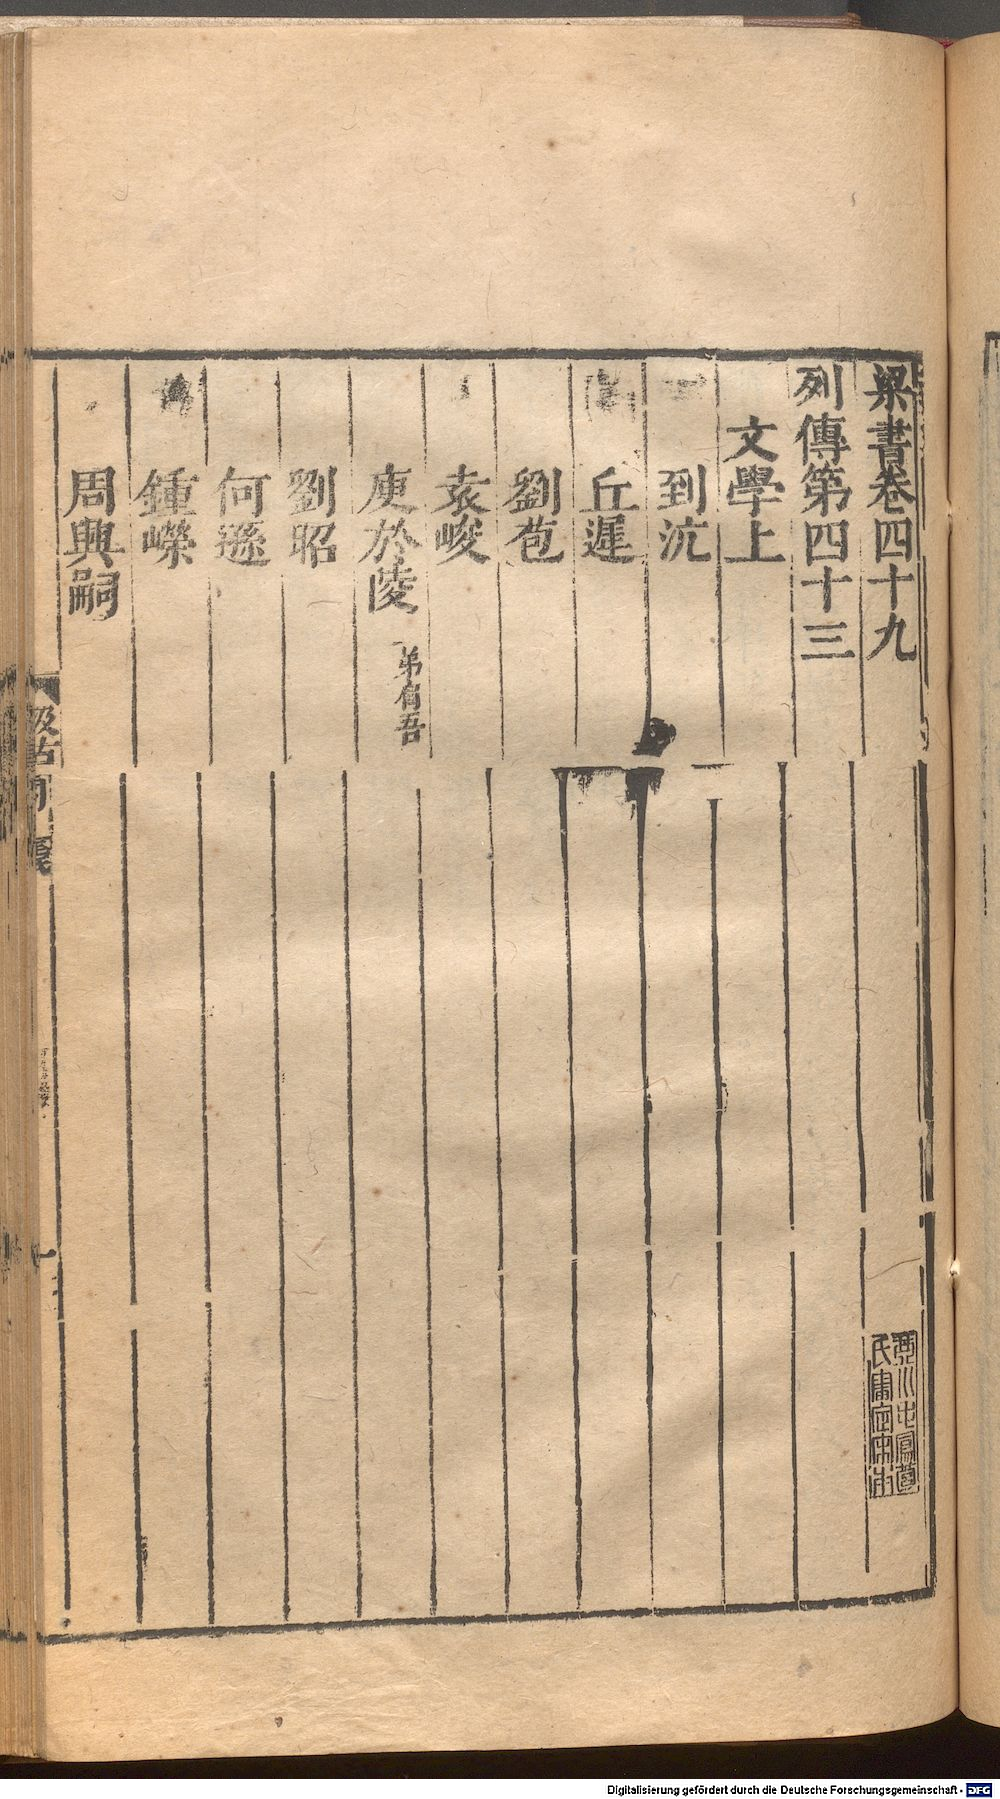 梁書卷四十九
列傳第四十三
文學上
到沆
丘遲
劉苞
袁峻
庾於陵 弟肩吾
劉昭
何遜
鍾嶸
周興嗣
汲古
Digitalisierung gefördert durch die Deutsche Forschungsgemeinschaft - DFG